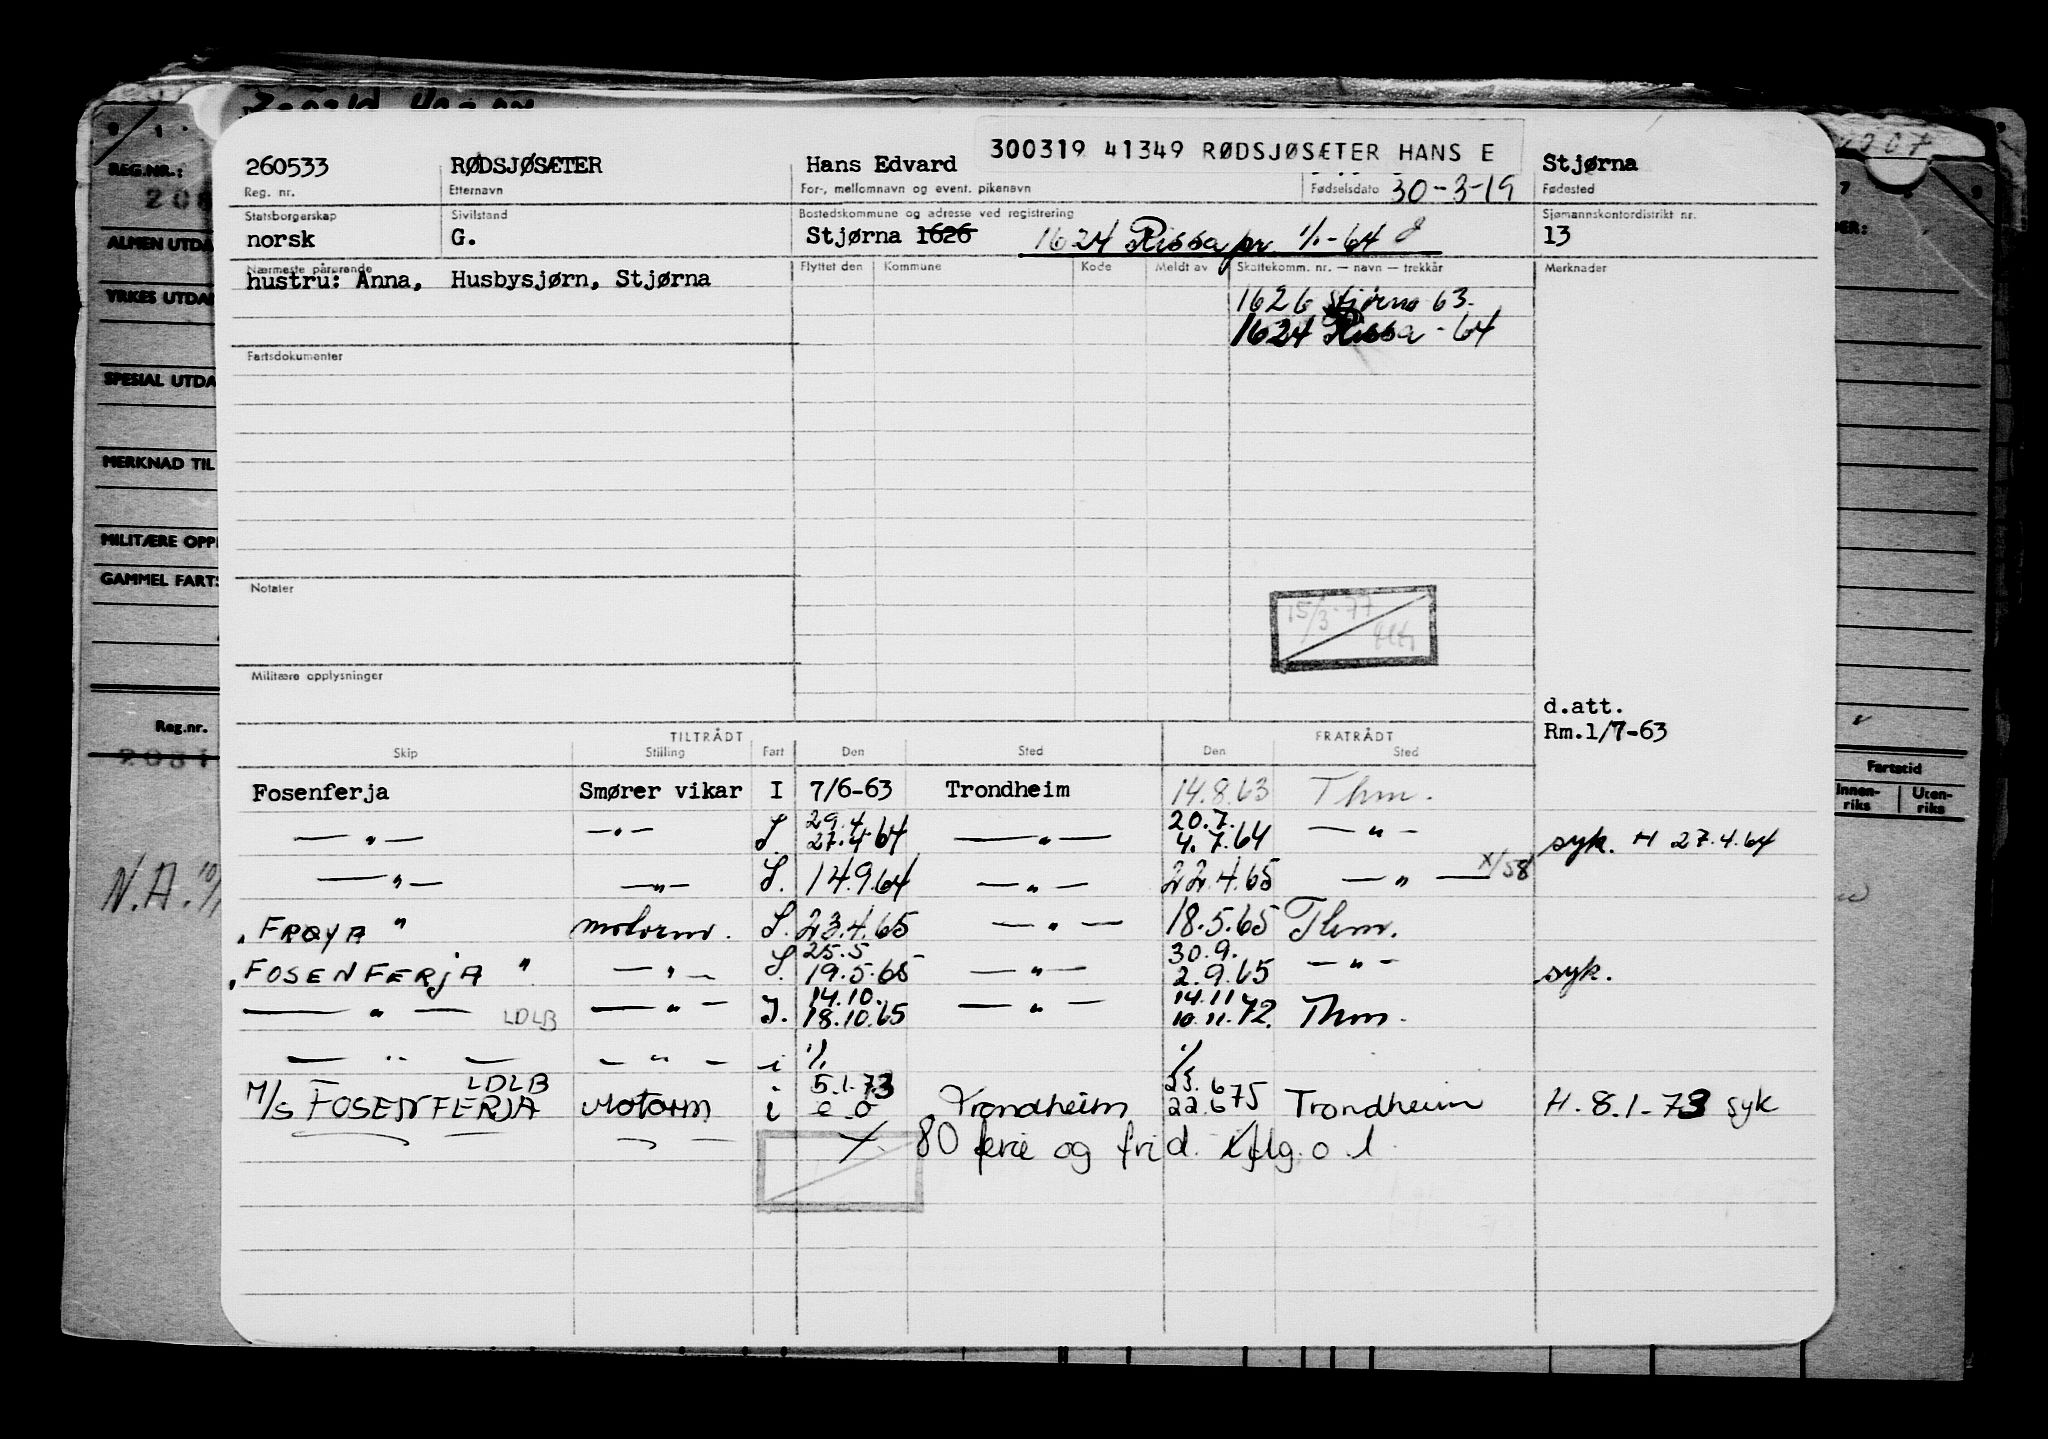 REG.NR.:
ALMEN UTDA
YRKES UTDA
SPESIAL UTDA
MERKNAD TIL
MILITÆRE OPP
GAMMEL FARTS
Reg.nr.
N.A.
300319 41349 RØDSJØSÆTER HANS E
260533 RØDSJØSÆTER Hans Edvard 30-3-19 Stjørna
Reg. nr. Etternavn For-, mellomnavn og event. pikenavn Fødselsdato Fødested
Statsborgerskap Sivilstand Bostedskommune og adresse ved registrering Sjømannskontordistrikt nr.
norsk G. Stjørna 1626 1624 Rissa pr 1/1-64 13
Nærmeste pårørende Flyttet den Kommune Kode Meldt av Skattekomm. nr. — navn — trekkår Merknader
hustru: Anna, Husbysjørn, Stjørna
1626 Stjørna 63.
1624 Rissa - 64
Fartsdokumenter
Notater
15/3-77
Militære opplysninger
d.att.
Rm.1/7-63
TILTRÅDT FRATRÅDT
Skip Stilling Fart Den Sted Den Sted
Fosenferja Smører vikar I 7/6-63 Trondheim 14.8.63 Thm.
29.4 20.7.
— " — — " — I. 27.4.64 — " — 4.7.64 — " — syk. H 27.4.64
— " — — " — I. 14.9.64 — " — 22.4.65 — " — x/58
"FRØYA" motorm. I. 23.4.65 — " — 18.5.65 Thm.
25.5 30.9.
"FOSENFERJA" — " — I. 19.5.65 — " — 2.9.65 — " — syk.
14.10. 14.11
— " — LDLB — " — I. 18.10.65 — " — 10.11.72. Thm.
— " — — " — i 1/. 1/.
LDLB 5.1.73 25.6
M/S FOSENFERJA Motorm i e.o Trondheim 22.675 Trondheim H. 8.1-73 syk
x 80 ferie og frid. iflg. o.l.
Fartstid
Innen-riks Uten-riks